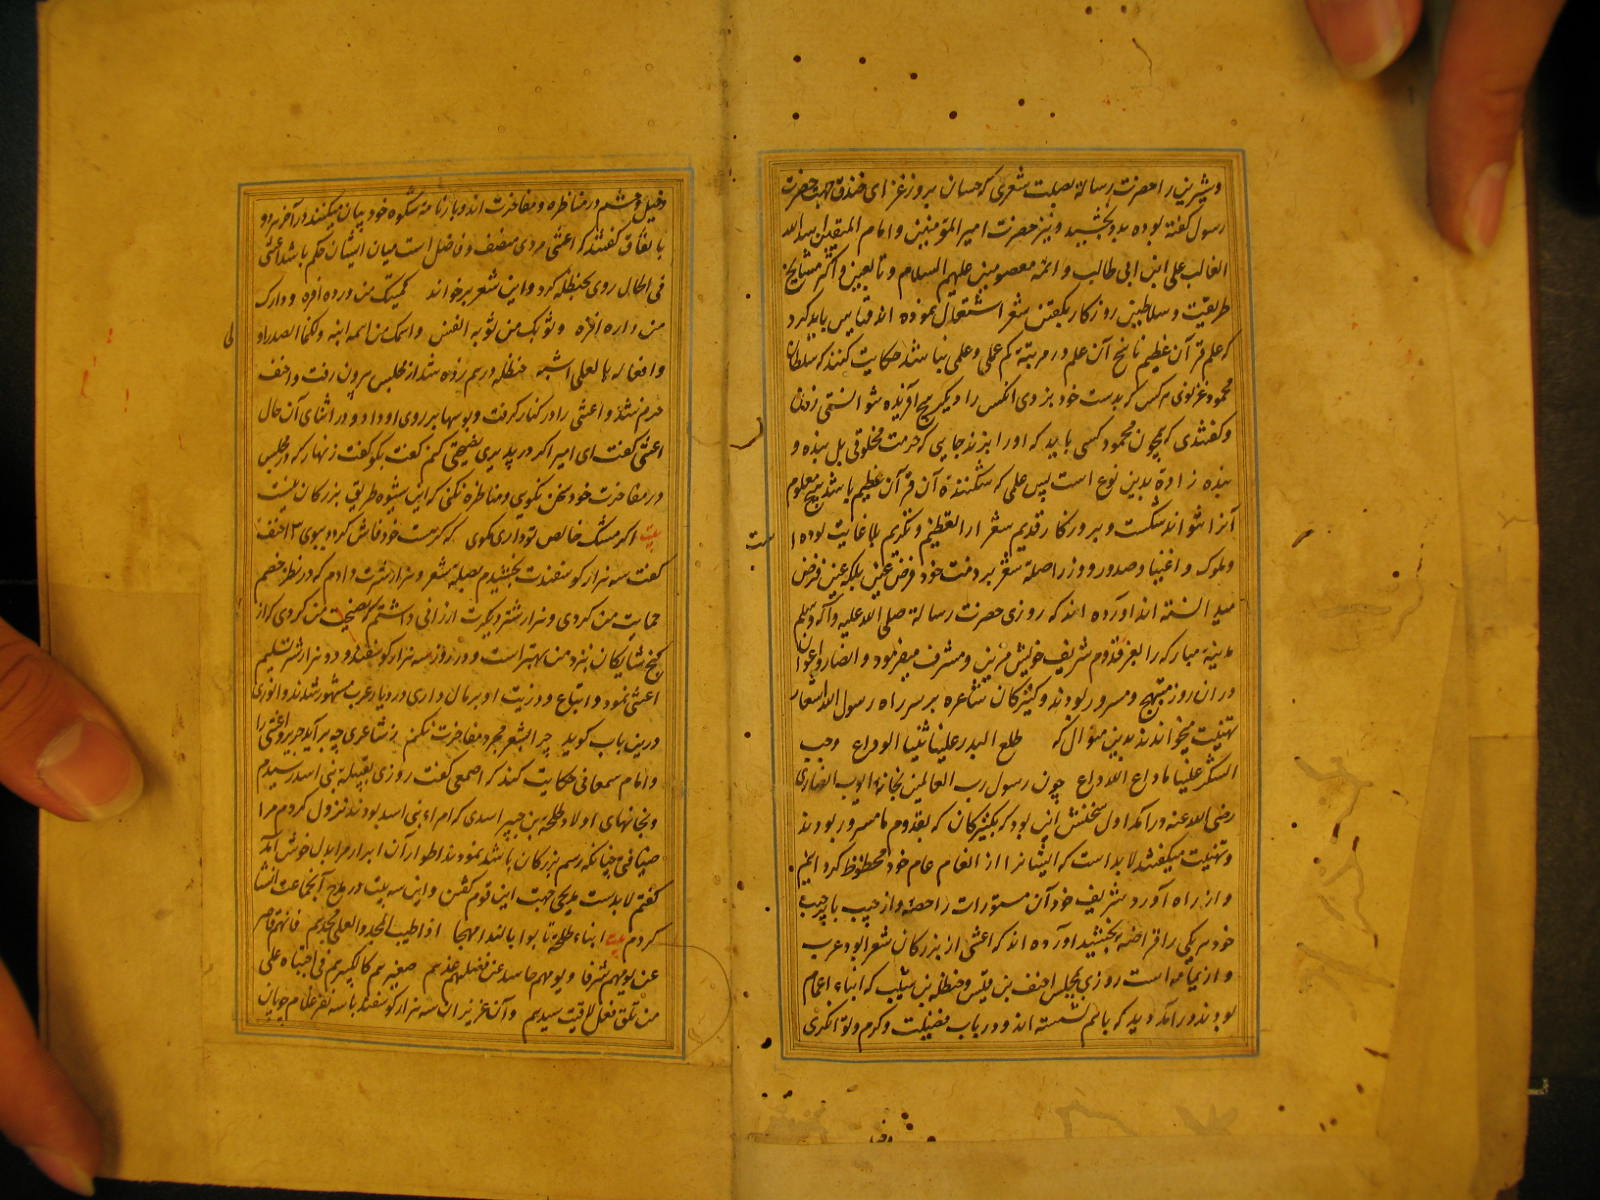 و شیرین را حضرت رسالة بصلت شعری که حسان بروز غزای خندق جهت حضرت
رسول گفته بوده بدو بخشید و نیز حضرت امیر المؤمنین و امام المتقین اسد الله
الغالب علی ابن ابی طالب و ائمه معصومین علیهم السلام و تابعین و اکثر مشایخ
طریقت و سلاطین روزکار بکفتن شعر اشتغال نموده اند قیاس باید کرد
که علم قرآن عظیم ناسخ آن علم و مرتبة کم عملی و علمی نباشد حکایت کنند که سلطان
محمود غزنوی هر کس که بدست خود بزدی آنکس را دیگر هیچ آفریده نتوانستی زدن
و کفتندی که همچون محمود کسی باید که او را بزند جایی که حرمت مخلوقی بل بنده و
بنده زاده بدین نوع است پس علمی که شکننده آن قرآن عظیم باشد هیچ معلوم
آنرا نتواند شکست و بروزکار قدیم شعرا را تعظیم و تکریم بلا غایت بوده است
و ملوک و اغنیا و صدور و وزرا صلة شعر بر ذمت خود فرض عین بلکه عین فرض
میدانسته اند آورده اند که روزی حضرت رسالة صلی الله علیه و آله وسلم
مدینة مبارکه را بعز قدوم شریف خویش مزین و مشرف میفرمود و انصار و اعوان
در آن روز مبتهج و مسرور بودند و کنیزکان شاعره بر سر راه رسول الله اشعار
تهنیت میخواندند بدین منوال که طلع البدر علینا من ثنیا الوداع وجب
الشکر علینا ما دعا لله داع چون رسول رب العالمین بخانه ابو ایوب انصاری
رضی الله عنه در آمد اول سخنش این بود که کنیزکان که بقدوم ما مسرور بودند
و تهنیت میکفتند لابد است که ایشانرا از انعام عام خود محظوظ کردانیم
و از راه آورد شریف خود آن مستورات را حصة و از جیب با
خود هر یکی را قراضة بخشید آورده اند که اعشی از بزرکان شعرا بود عرب
و از یمامه است روزی بمجلس احنف بن قیس و حنظله بن شیب که ابناء اعمام
بودند در آمد دید که با هم نشسته اند و در باب فضیلت و کرم و توانکری
و خیل و حشم در مناظره و مفاخرت اند و بازنامة شکوه خود بیان میکنند در آخر هر دو
باتفاق کفتند که اعشی مردی منصف و فاضل است میان ایشان حکم باشد اعشی
فی الحال روی بحنظله کرد و این شعر برخواند کمیتک من ورده افره و دارک
من داره انزه و ثوبک من ثوبه انفس و امک من امه ابنه ولکنما الصدر او
و افعاله بالعلی اشبه حنظله درهم زده شد از مجلس بیرون رفت و احنف
خرم شد و اعشی را در کنار کرفت و بوسها بر روی او داد و در اثنای آن حال
اعشی کفت ای امیر اکر در پذیری نصیحتی کنم کفت بکو کفت زنهار که در مجلس
در مفاخرت خود سخن نکویی و مناظره نکنی که این شیوه طریق بزرکان نیست
بیت اکر مشک خالص تو داری مکوی که هر هست خود فاش کردد ببوی احنف
کفت سه هزار کوسفندت بخشیدم بصلة شعر و هزار شترت دادم که در نظر خصم
حمایت من کردی و هزار شتر دیکرت ارزانی داشتم که نصیحت من کردی که از
کنج شایکان نزد من بهتر است و در روز سه هزار کوسفند و دو هزار شتر تسلیم
اعشی نمود و اتباع و وزیت او بر مال داری در دیار عرب مشهور شدند و انوری
درین باب کوید جرا بشعر مجرد مفاخرت نکنم ز شاعری چه بر آمد جریر و اعشی را
و امام سمعانی حکایت کند که اصمعی کفت روزی بقبیلة بنی اسد رسیدم
و بخانهای اولاد طلحة بن جبیر اسدی که امراء بنی اسد بودند نزول کردم مرا
ضیافتی چنانکه رسم بزرکان باشد بنمودند اطوار آن ابرار مرا بدل خوش آمد
کفتم لابدست مدیحی جهت این قوم کفتن و این سه بیت در مدح آنجماعت انشا
کردم بیت ابناء طلحة تابوا بالندا المهجا اذ اطیب المجد و العلی مجدیهم فانهم قام
عن یومهم شرفا و یومهم حاسد عن فضلهم غدهم صغیرهم کالکبیرهم فی اجتباه علی
من تلق فقل لاقیت سیدهم و آن عزیزان سه هزار کوسفند با سه نفر غلام چوپان